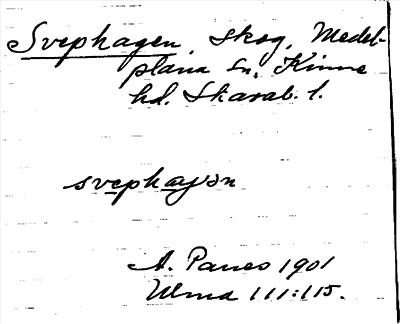 Svephagen, skog, Medel-
plana sn, Kinne
hd. Skarab. l.
svephagən
A. Panes 1901
Ulma 111:115.